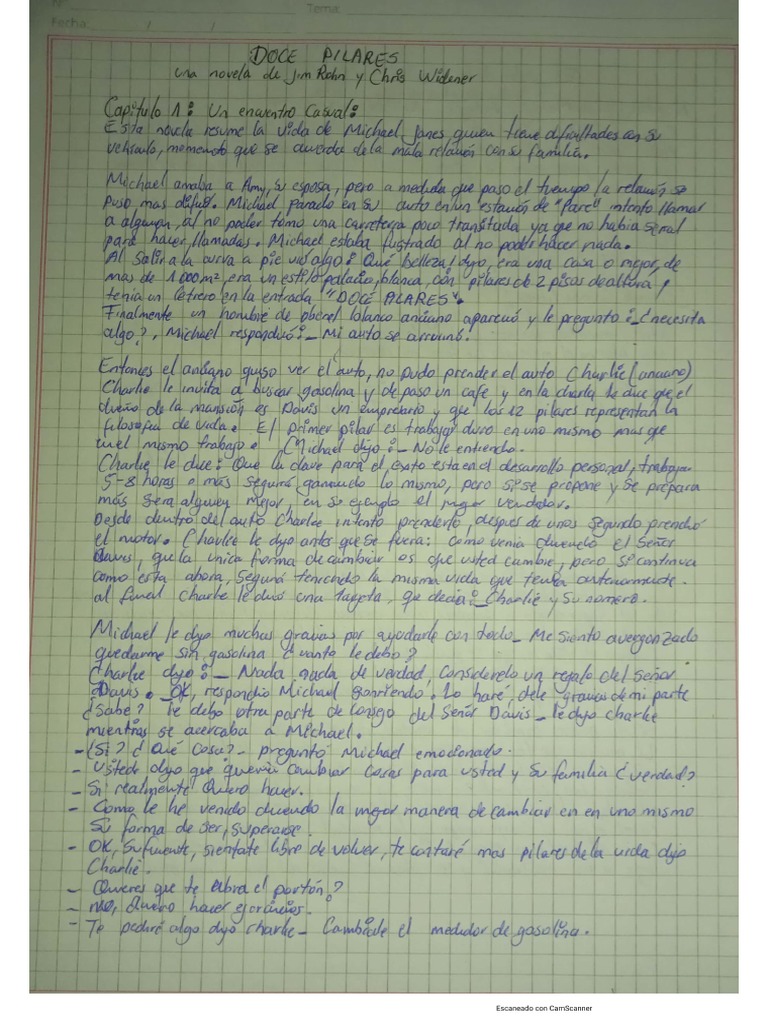 Tema:
Fecha: / /
DOCE PILARES
una novela de Jim Rohn y Chris Widener
Capítulo 1: Un encuentro Casual:
Esta novela resume la vida de Michael Jones, quien tiene dificultades con su
vehículo, memento que se acuerda de la mala relación con su familia.
Michael amaba a Amy, su esposa, pero a medida que paso el tiempo la relación se
puso mas dificil. Michael parado en su auto en un estación de "pare" intento llamar
a alguien, al no poder tomo una carreterga poco transitada ya que no habia señal
para hacer llamadas. Michael estaba frustrado al no poder hacer nada.
Al salir a la curva a pie vió algo: Qué belleza! dijo, era una casa o mejor, de
mas de 1000 m², era un estilo palacio, blanca, con pilares de 2 pisos de altura y
tenia un letrero en la entrada "DOCE PILARES".
Finalmente un hombre de blanco anciano apareció y le pregunto:_ ¿necesita
algo?, Michael respondió:_ Mi auto se arruinó.
Entonces el anciano quiso ver el auto, no pudo prender el auto Charlie (anciano)
Charlie le invita a buscar gasolina y de paso un cafe y en la charla le dice que el
dueño de la mansión es Davis un empresario y que los 12 pilares representan la
filosofia de vida. El primer pilar es trabajar duro en uno mismo mas que
en el mismo trabajo. Michael dijo:_ No le entiendo.
Charlie le dice: Que la clave para el exito esta en el desarrollo personal, trabajar
5-8 horas o más seguirá ganando lo mismo, pero si se propone y se prepara
más sera alguien mejor, en su ejemplo el mejor vendedor.
Desde dentro del auto Charlie intento prenderlo, después de unos segundo prendió
el motor. Charlie le dijo antes que se fuera: como venia diciendo el Señor
Davis, que la unica forma de cambiar es que usted cambie, pero si continua
como esta ahora, seguirá teniendo la misma vida que tenia anteriormente.
al final Charlie le dio una tarjeta, que decia:_ Charlie y su número.
Michael le dijo muchas gracias por ayudarle con todo_ Me siento avergonzado
quedarme sin gasolina ¿cuanto le debo?
Charlie dijo:_ Nada, nada de verdad, considerelo un regalo del señor
Davis. _OK, respondio Michael sonriendo. Lo haré, dele gracias de mi parte
¿Sabe? le debo otra parte de consejo del Señor Davis_ le dijo charlie
mientras se acercaba a Michael.
- ¿Si? ¿Qué cosa? - preguntó Michael emocionado.
- Usted dijo que queria cambiar cosas para usted y su familia ¿verdad?
- Si realmente quiero hacer.
- Como le he venido diciendo la mejor manera de cambiar en en uno mismo
su forma de ser, superarse.
- OK, suficiente, sientate libre de volver, te contaré mas pilares de la vida dijo
Charlie.
- Quieres que te abra el portón?
- no, quiero hacer ejercicios.
- Te pediré algo dijo charlie_ Cambiale el medidor de gasolina.
Escaneado con CamScanner